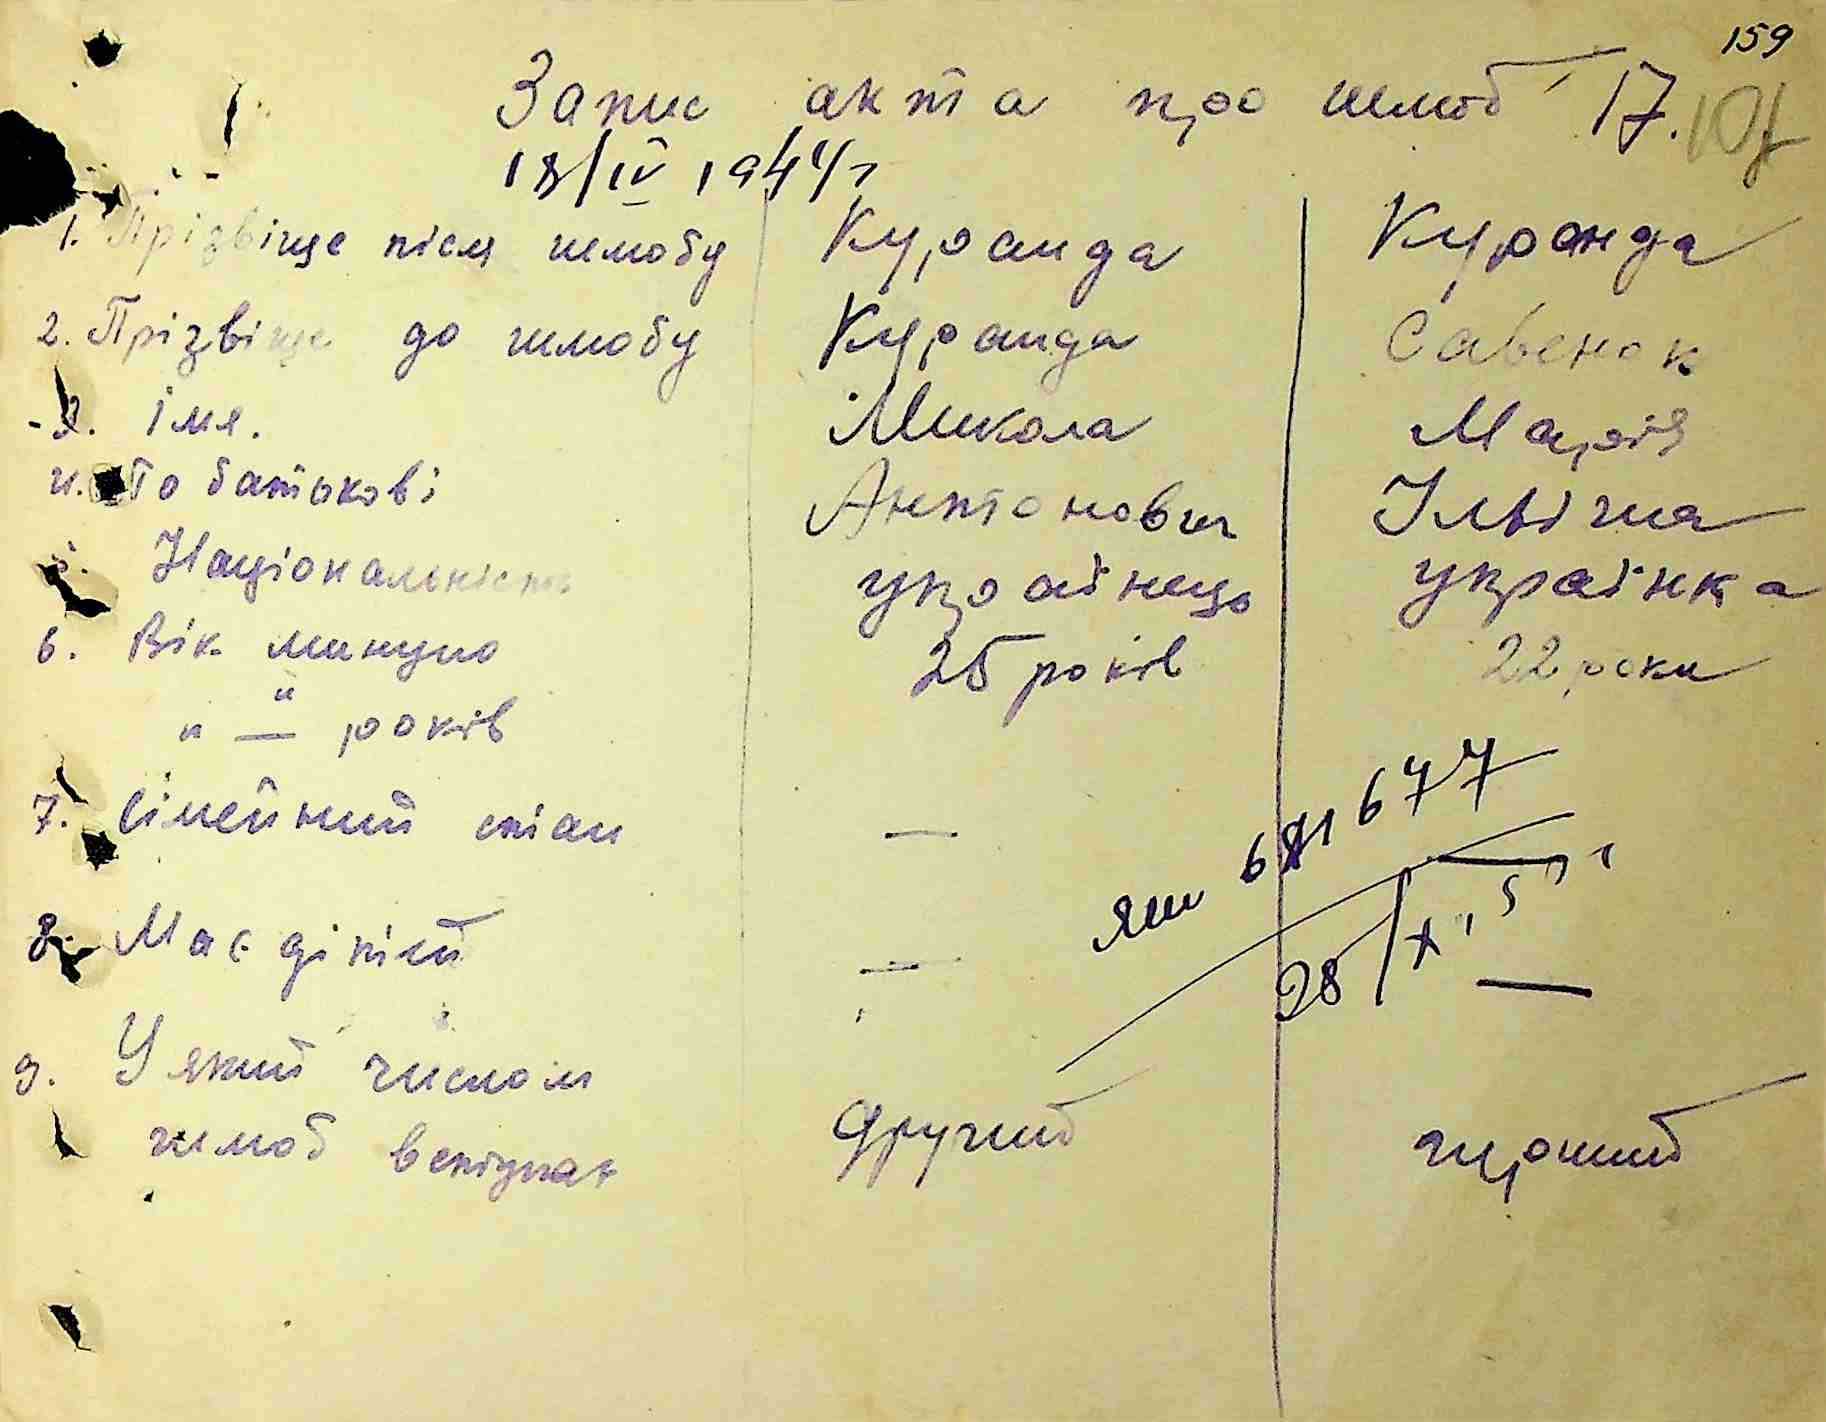 159
Запис акта про шлюб 17.
18/IV 1944 г
1. Прізвіще післ шлюбу Куранда Куранда
2. Прізвіще до шлюбу Куранда Савенок
3. імя. Микола Марія
4. По батькові Антонович Ільічна
5. Національність українець українка
6. Вік минуло 25 років 22 роки
" — " років
7. Сімейний стан —
8. Має дітей — —
9. У який числом
шлюб вступає другий перший
ЯШ 677
28/X